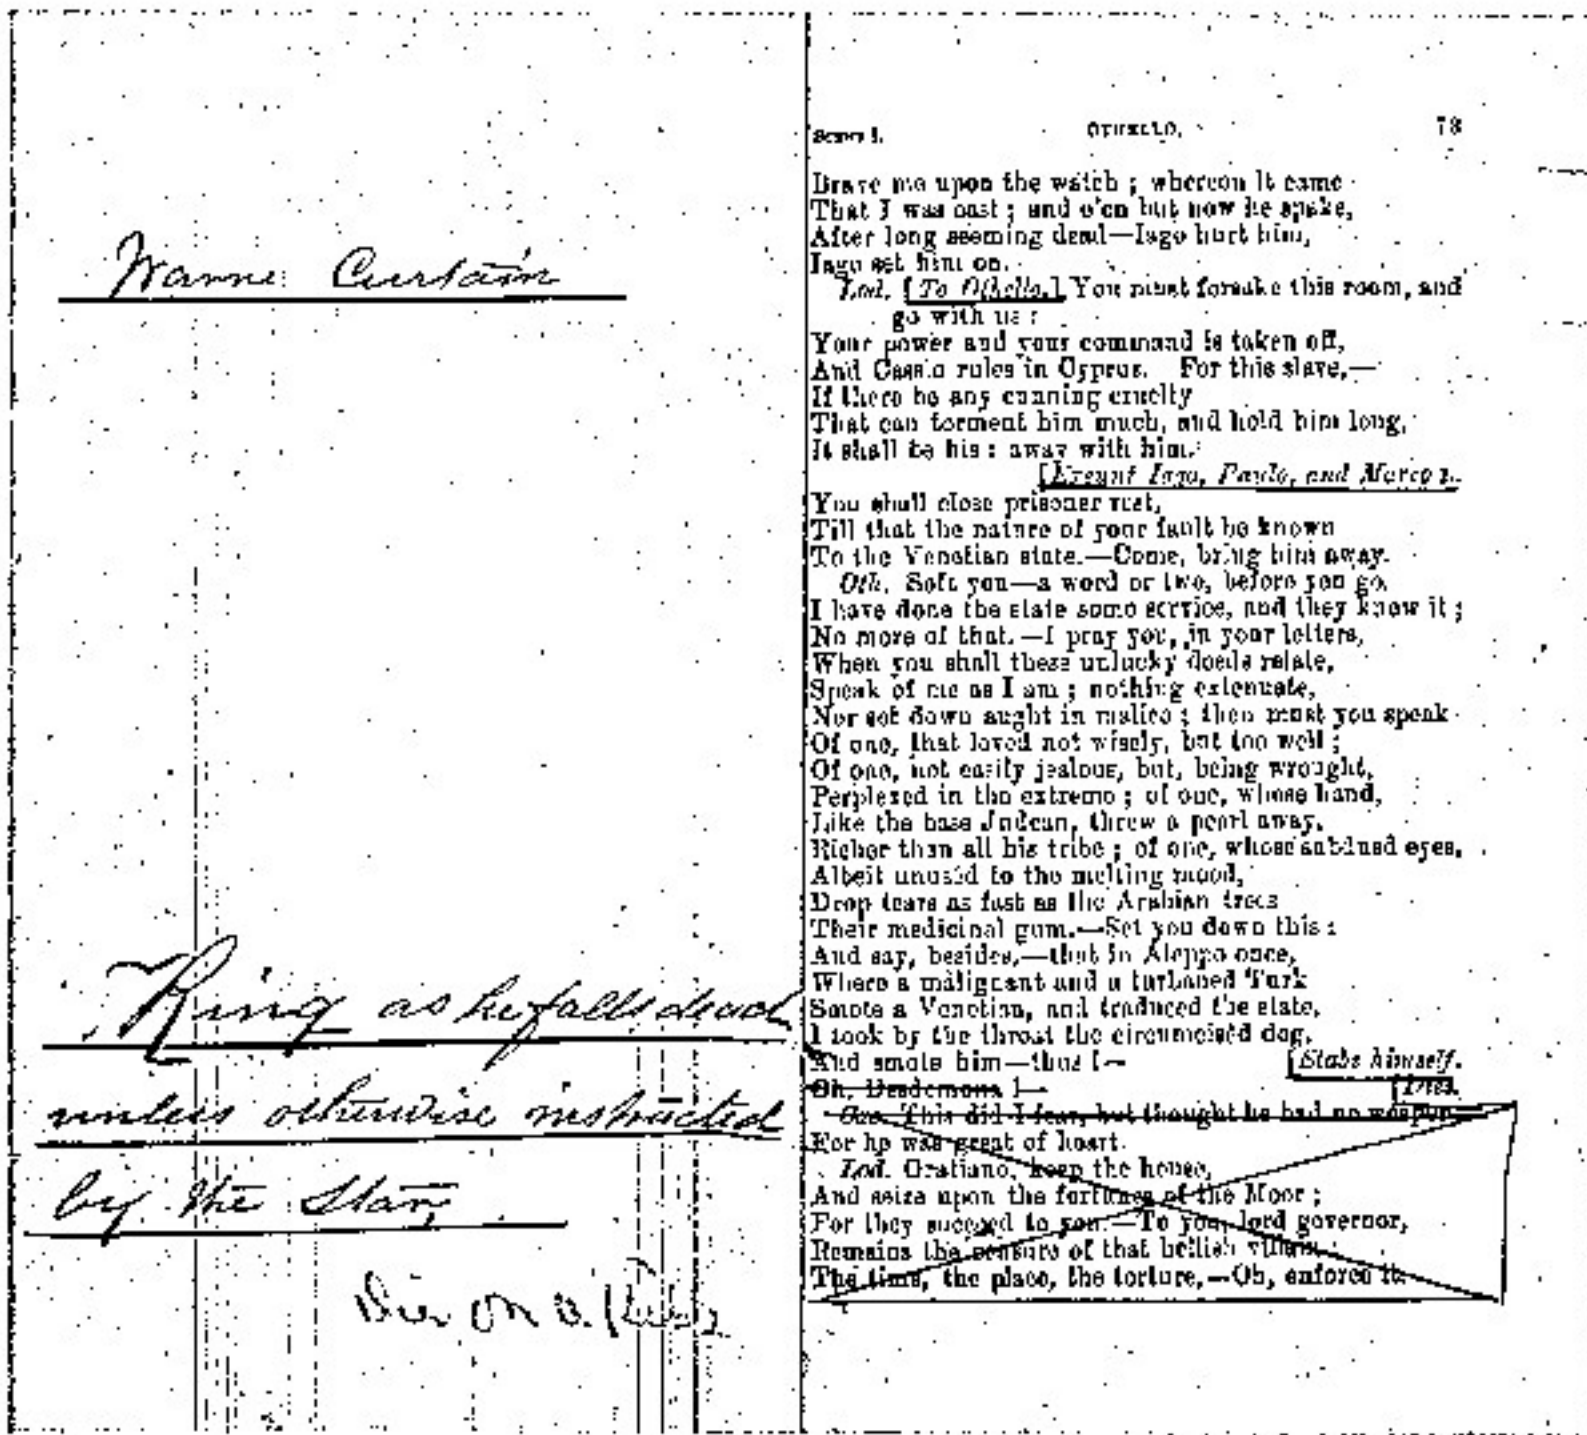 Warne Curtain
Ring as he falls dead
unless otherwise instructed
by the Star
Scene I. OTHELLO. 73
Brave me upon the watch ; whereon it came
That I was cast ; and e'en but now he spake,
After long seeming dead—Iago hurt him,
Iago set him on.
Lod. [To Othello.] You must forsake this room, and
go with us :
Your power and your command is taken off,
And Cassio rules in Cyprus. For this slave,—
If there be any cunning cruelty
That can torment him much, and hold him long,
It shall be his : away with him.
[Exeunt Iago, Paulo, and Marco
You shall close prisoner rest,
Till that the nature of your fault be known
To the Venetian state.—Come, bring him away.
Oth. Soft you—a word or two, before you go.
I have done the state some service, and they know it ;
No more of that.—I pray you, in your letters,
When you shall these unlucky deeds relate,
Speak of me as I am ; nothing extenuate,
Nor set down aught in malice ; then must you speak
Of one, that loved not wisely, but too well ;
Of one, not easily jealous, but, being wrought,
Perplexed in the extreme ; of one, whose hand,
Like the base Judean, threw a pearl away,
Richer than all his tribe ; of one, whose subdued eyes,
Albeit unused to the melting mood,
Drop tears as fast as the Arabian trees
Their medicinal gum.—Set you down this :
And say, besides,—that in Aleppo once,
Where a malignant and a turbaned Turk
Smote a Venetian, and traduced the state,
I took by the throat the circumcised dog,
And smote him—thus !— [Stabs himself.
Oh, Desdemona !— [Dies.
Cas. This did I fear, but thought he had no weapon
For he was great of heart.
Lod. Gratiano, keep the house,
And seize upon the fortunes of the Moor ;
For they succeed to you.—To you, lord governor,
Remains the censure of that hellish villain ;
The time, the place, the torture,—Oh, enforce it